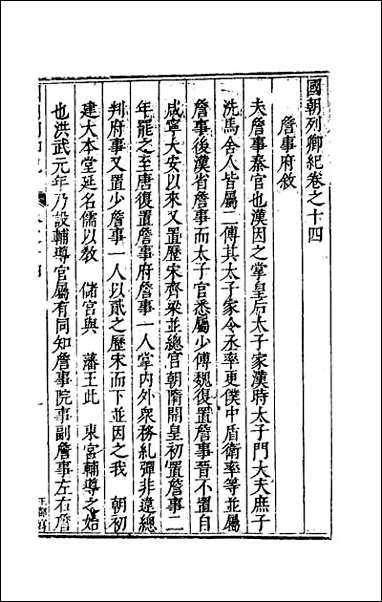 國朝列卿紀卷之十四
詹事府敘
夫詹事秦官也漢因之掌皇后太子家漢時太子門大夫庶子
洗馬舍人皆屬二傅其太子家令丞率更僕中盾衛率等並屬
詹事後漢省詹事而太子官悉屬少傅魏復置詹事晉不置自
咸寧大安以來又置歷宋齊梁並總官朝隋開皇初置詹事二
年罷之至唐復置詹事府詹事一人掌內外衆務糺彈非違總
判府事又置少詹事一人以貳之歷宋而下並因之我 朝初
建大本堂延名儒以教 儲宮與 藩王此 東宮輔導之始
也洪武元年乃設輔導官屬有同知詹事院事副詹事左右詹